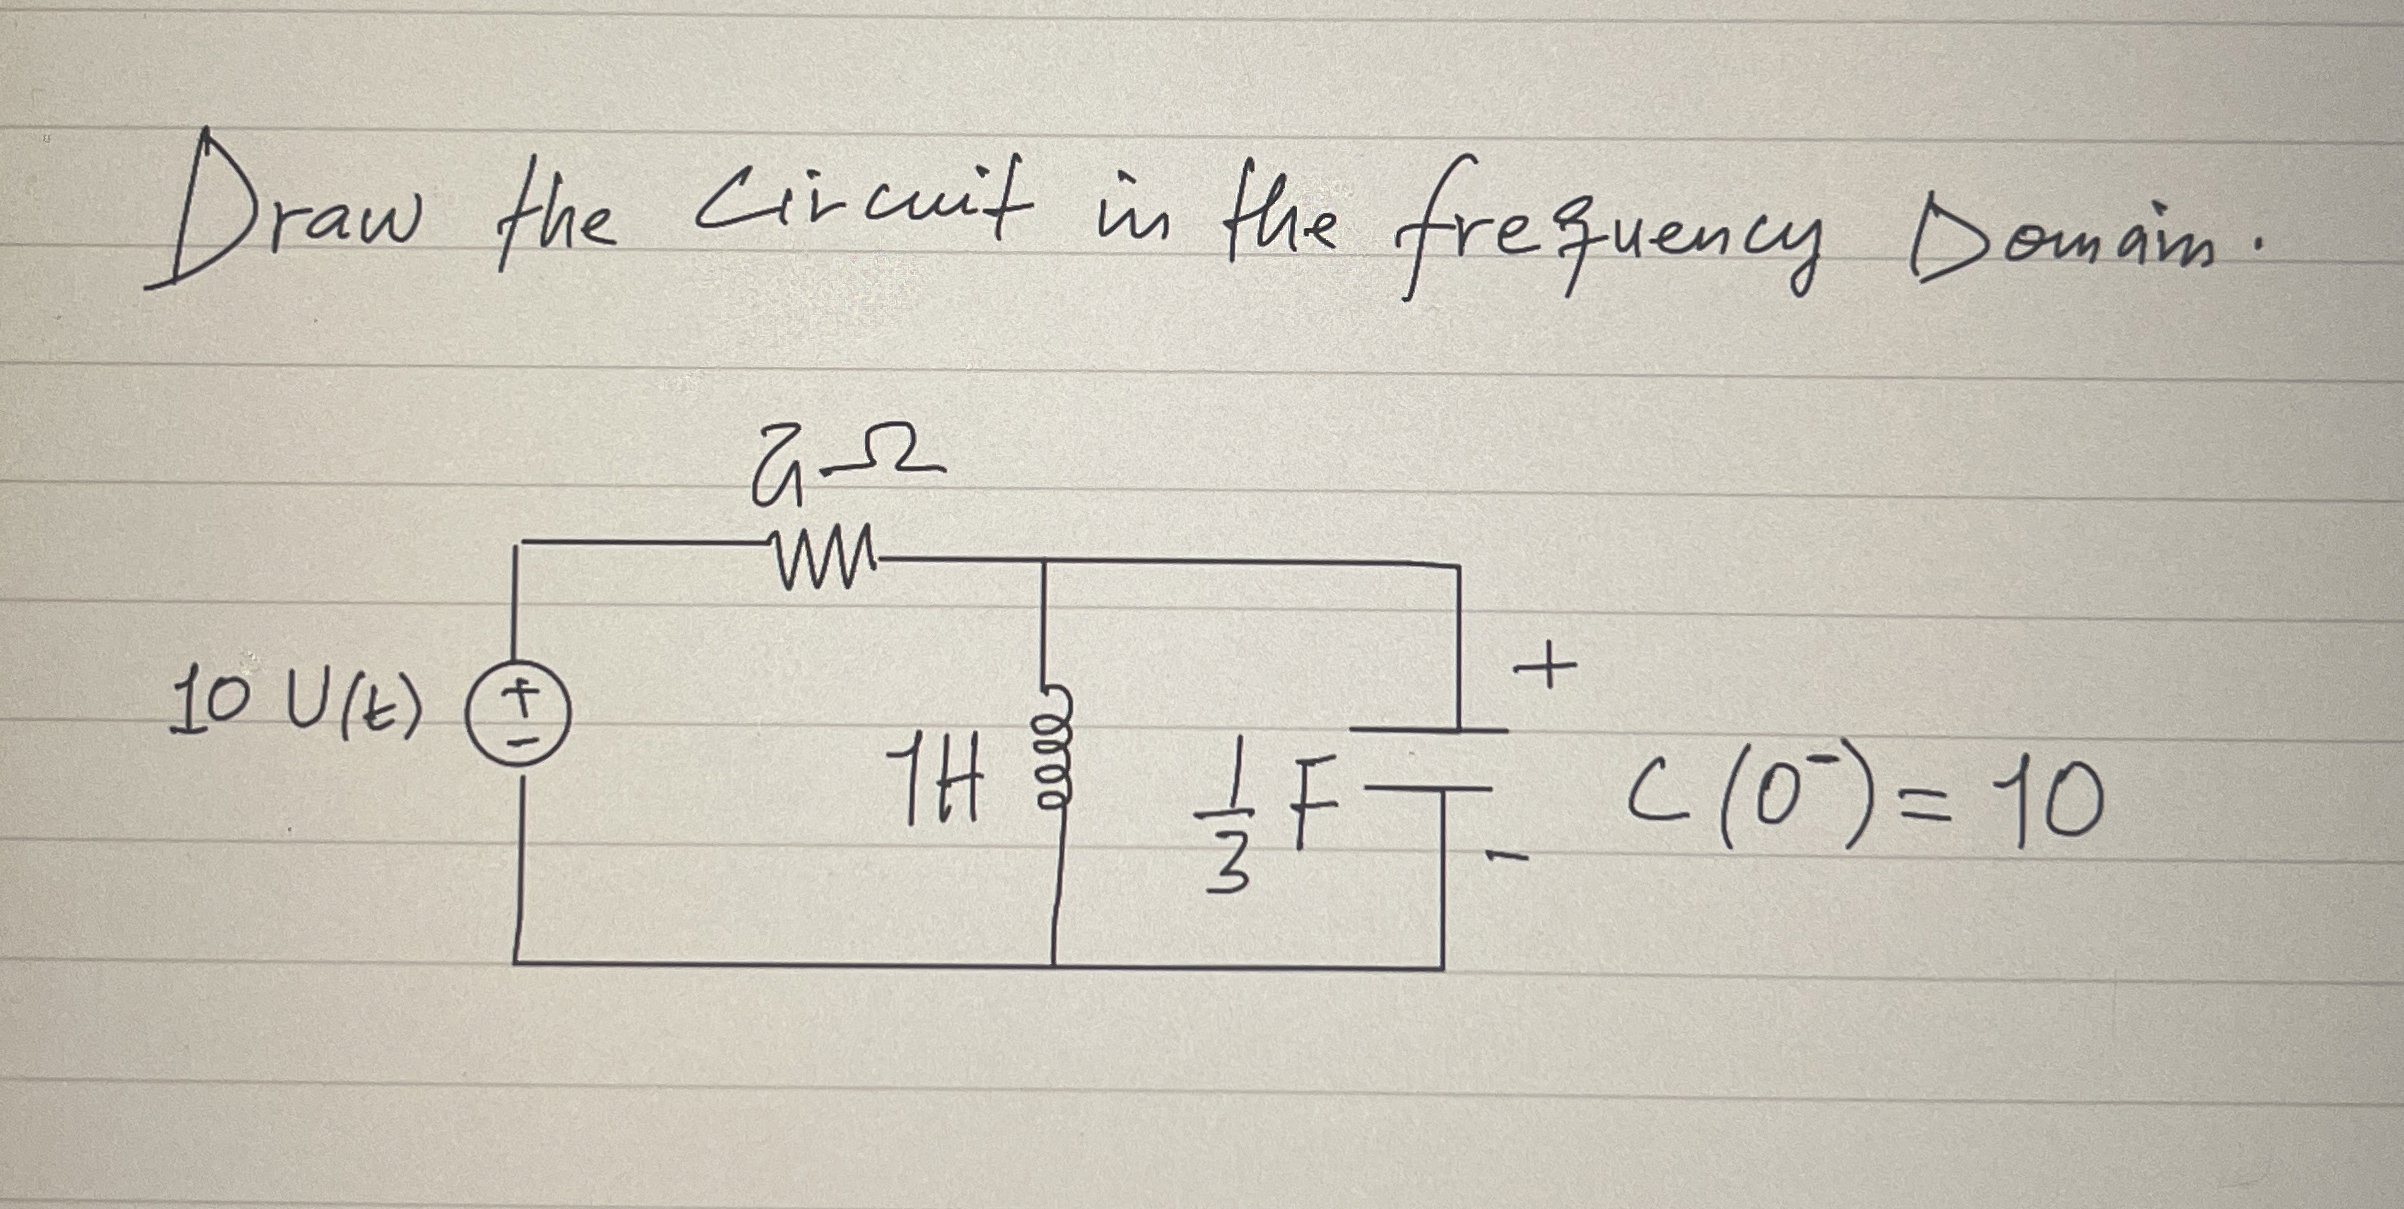 Draw the Circuit in the frequency Domain.
2Ω
10 U(t)
+
-
1H
1/3 F
+
-
C(0⁻) = 10